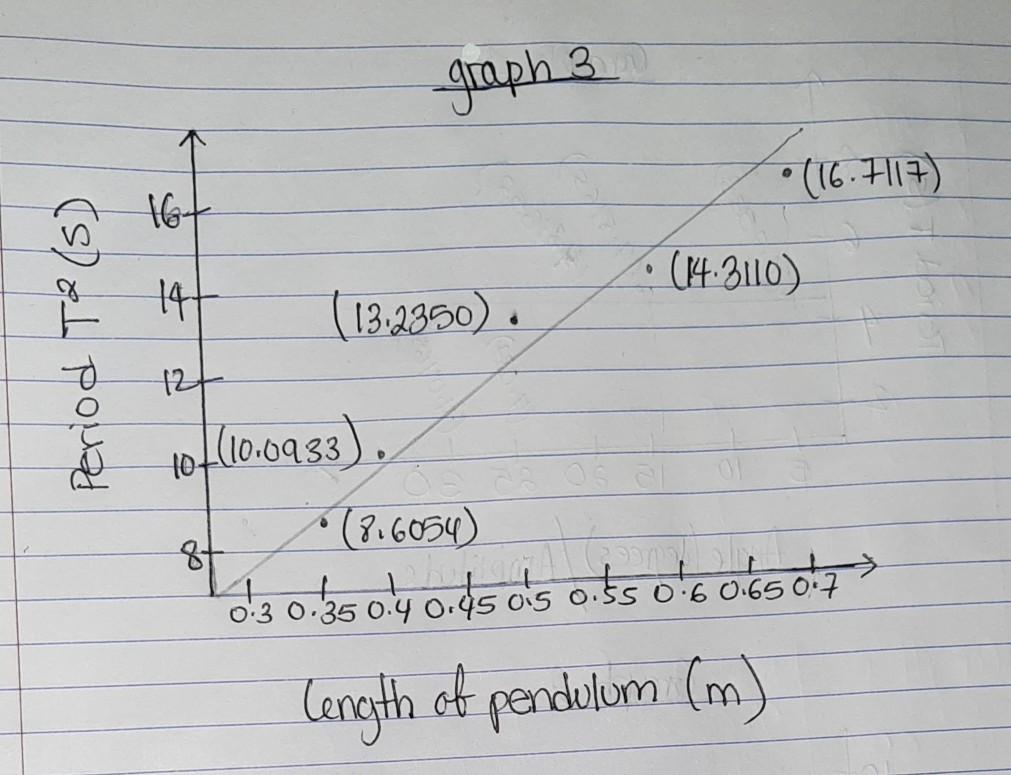 graph 3
(16.7117)
16
(14.3110)
14
(13.2350)
12
(10.0933)
10
(8.6054)
8
0.3 0.35 0.4 0.45 0.5 0.55 0.6 0.65 0.7
Period T² (S)
length of pendulum (m)